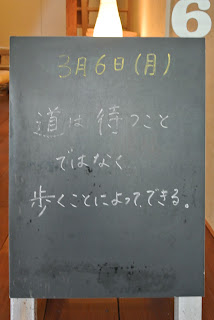 6
3月6日(月)
道は待つこと
ではなく
歩くことによって、できる。